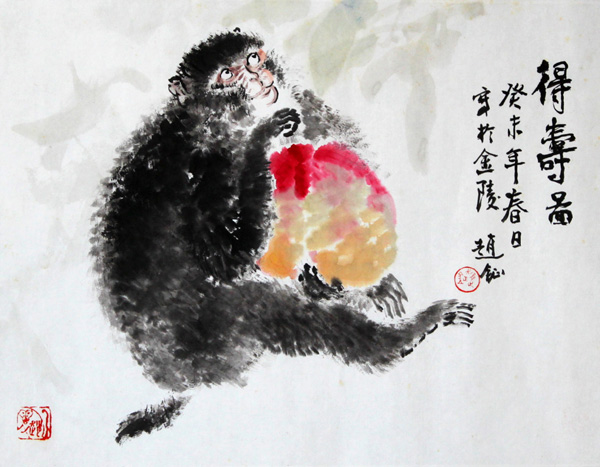 得壽圖
癸未年春日
寫於金陵
趙